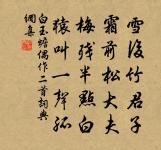 雪後竹君子
霜前松大夫
梅残半點白
猿叫一聲孤
白玉蟾偶作二首詞典
網集